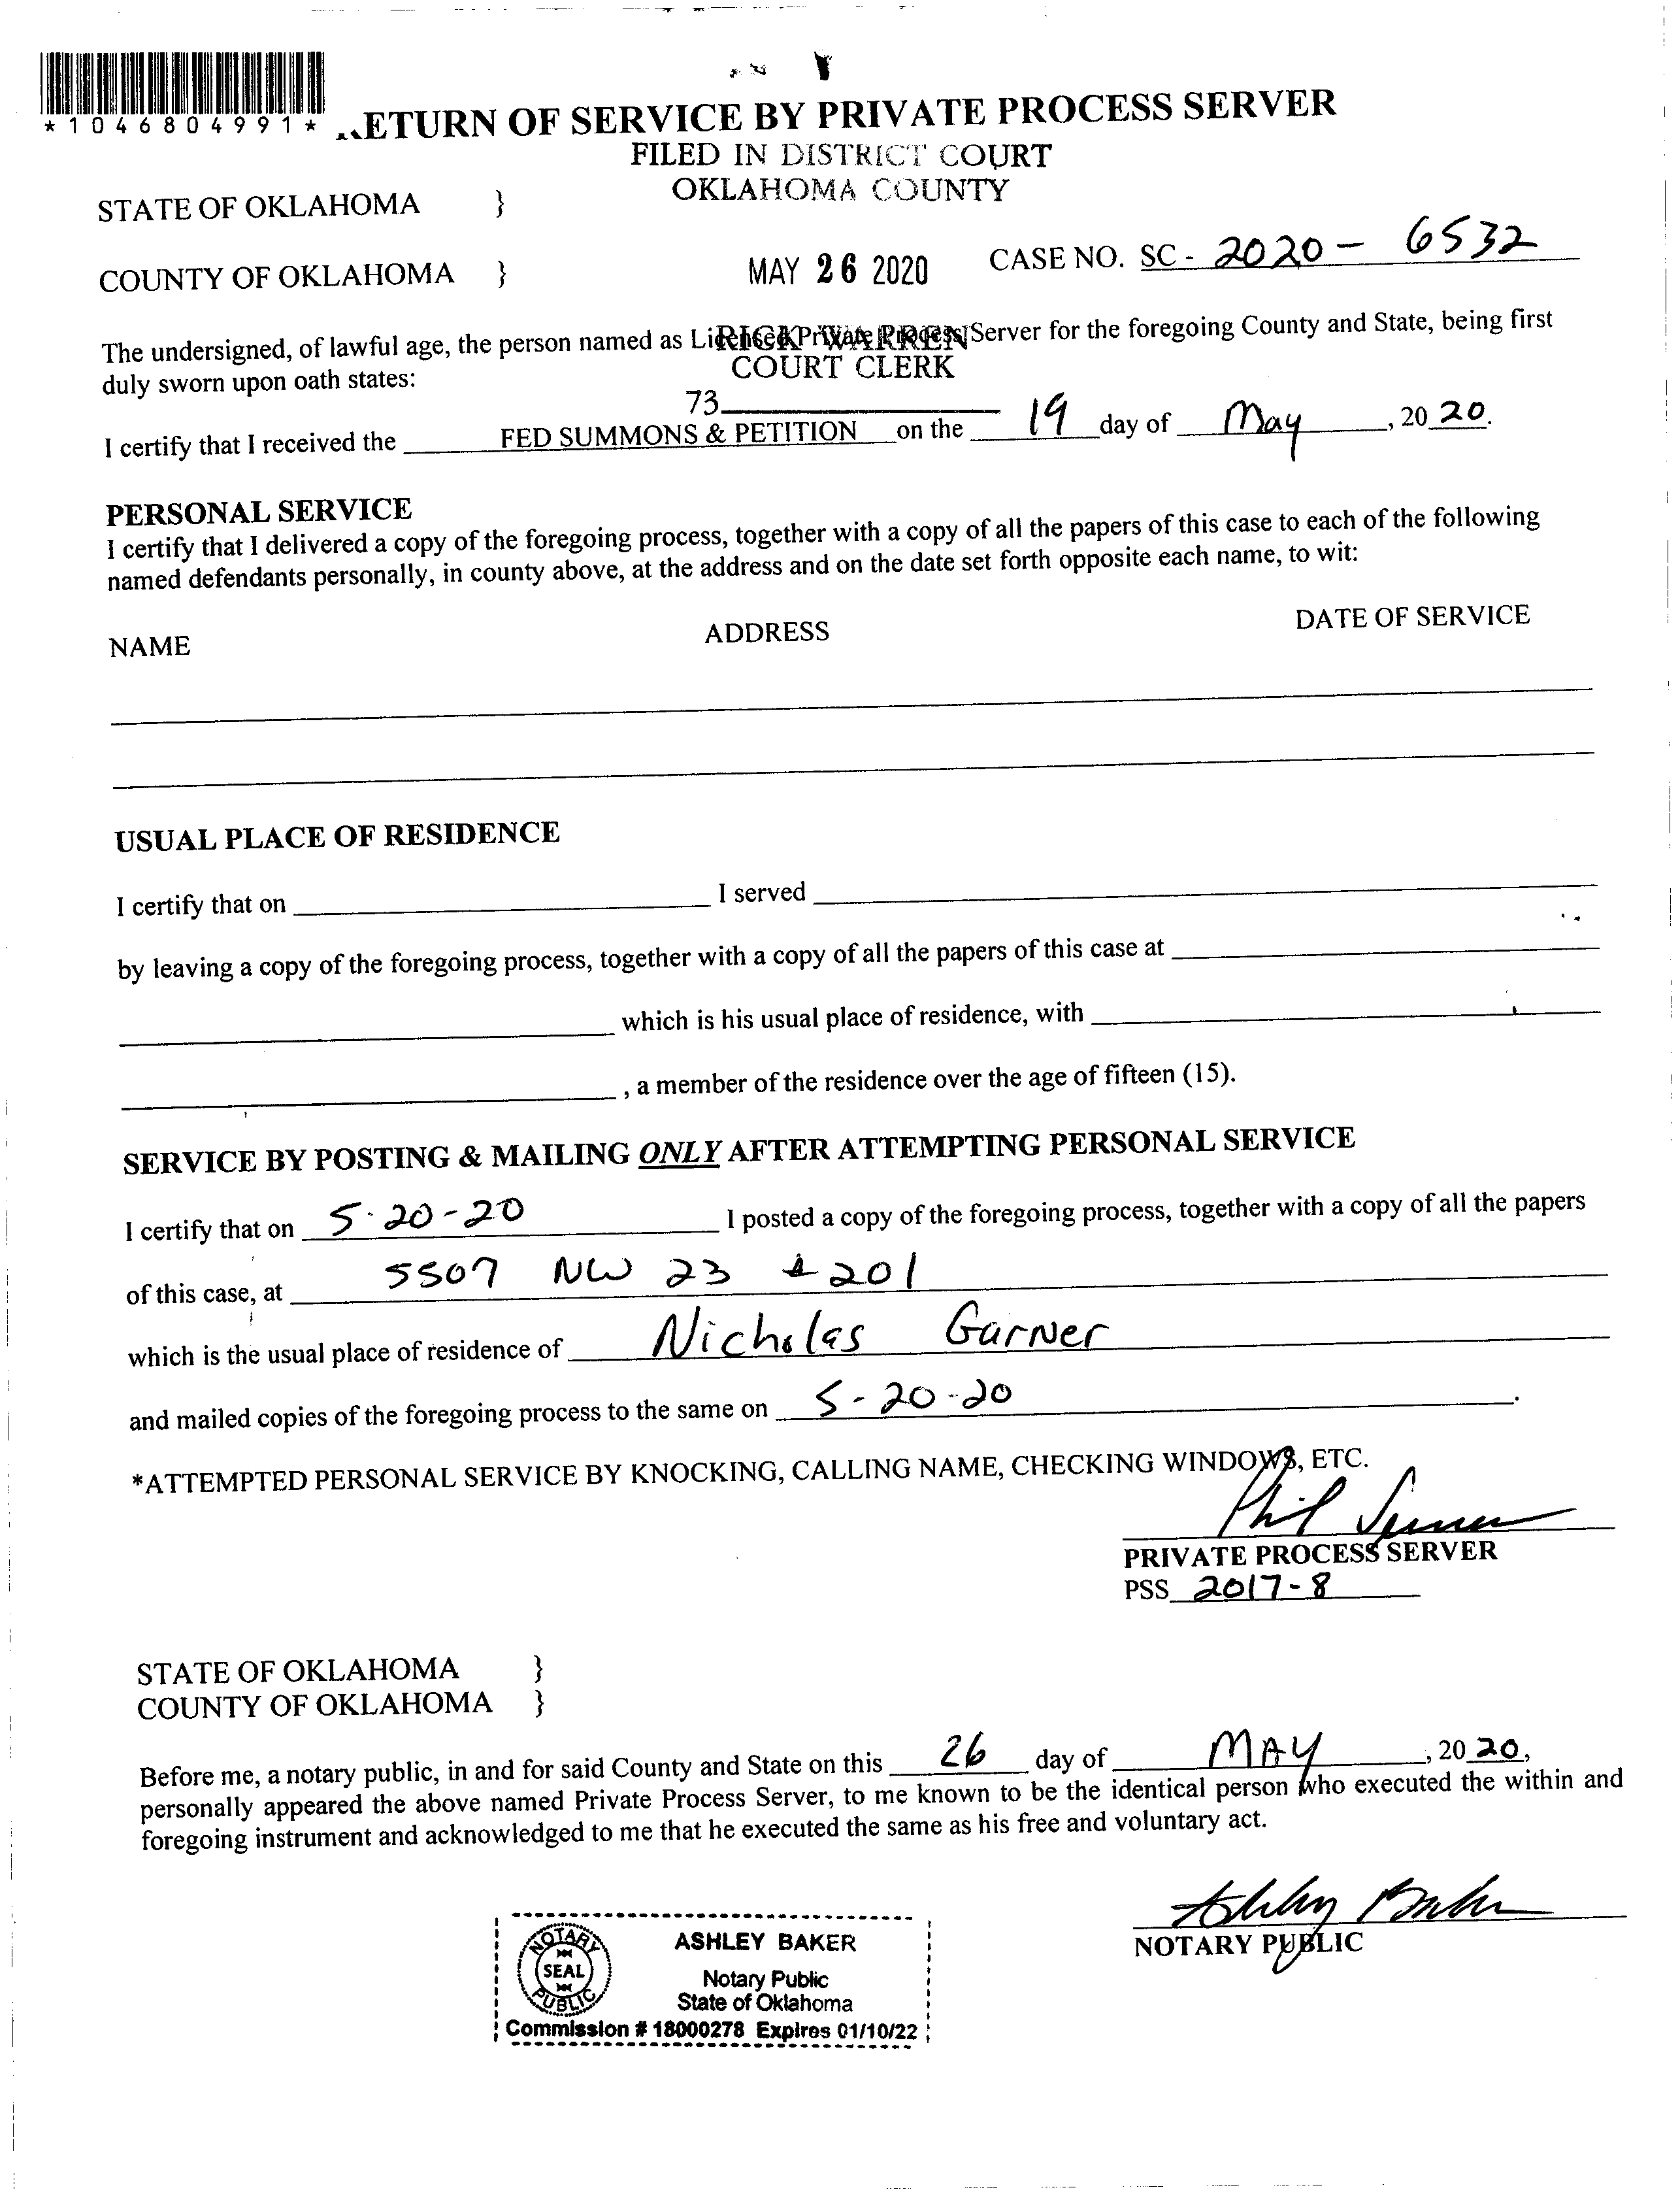 *1046804991*
ETURN OF SERVICE BY PRIVATE PROCESS SERVER
FILED IN DISTRICT COURT
OKLAHOMA COUNTY
STATE OF OKLAHOMA }
COUNTY OF OKLAHOMA } MAY 26 2020 CASE NO. SC - 2020 - 6532
The undersigned, of lawful age, the person named as Licensed Private Process Server for the foregoing County and State, being first
RICK WARREN
duly sworn upon oath states: COURT CLERK
73
I certify that I received the FED SUMMONS & PETITION on the 19 day of May, 20 20.
PERSONAL SERVICE
I certify that I delivered a copy of the foregoing process, together with a copy of all the papers of this case to each of the following
named defendants personally, in county above, at the address and on the date set forth opposite each name, to wit:
NAME ADDRESS DATE OF SERVICE
USUAL PLACE OF RESIDENCE
I certify that on I served
by leaving a copy of the foregoing process, together with a copy of all the papers of this case at
which is his usual place of residence, with
, a member of the residence over the age of fifteen (15).
SERVICE BY POSTING & MAILING ONLY AFTER ATTEMPTING PERSONAL SERVICE
I certify that on 5-20-20 I posted a copy of the foregoing process, together with a copy of all the papers
of this case, at 5507 NW 23 # 201
which is the usual place of residence of Nicholas Garner
and mailed copies of the foregoing process to the same on 5-20-20.
*ATTEMPTED PERSONAL SERVICE BY KNOCKING, CALLING NAME, CHECKING WINDOWS, ETC.
Phil
PRIVATE PROCESS SERVER
PSS 2017-8
STATE OF OKLAHOMA }
COUNTY OF OKLAHOMA }
Before me, a notary public, in and for said County and State on this 26 day of MAY, 20 20,
personally appeared the above named Private Process Server, to me known to be the identical person who executed the within and
foregoing instrument and acknowledged to me that he executed the same as his free and voluntary act.
Ashley Baker
NOTARY PUBLIC
NOTARY SEAL PUBLIC
ASHLEY BAKER
Notary Public
State of Oklahoma
Commission # 18000278 Expires 01/10/22